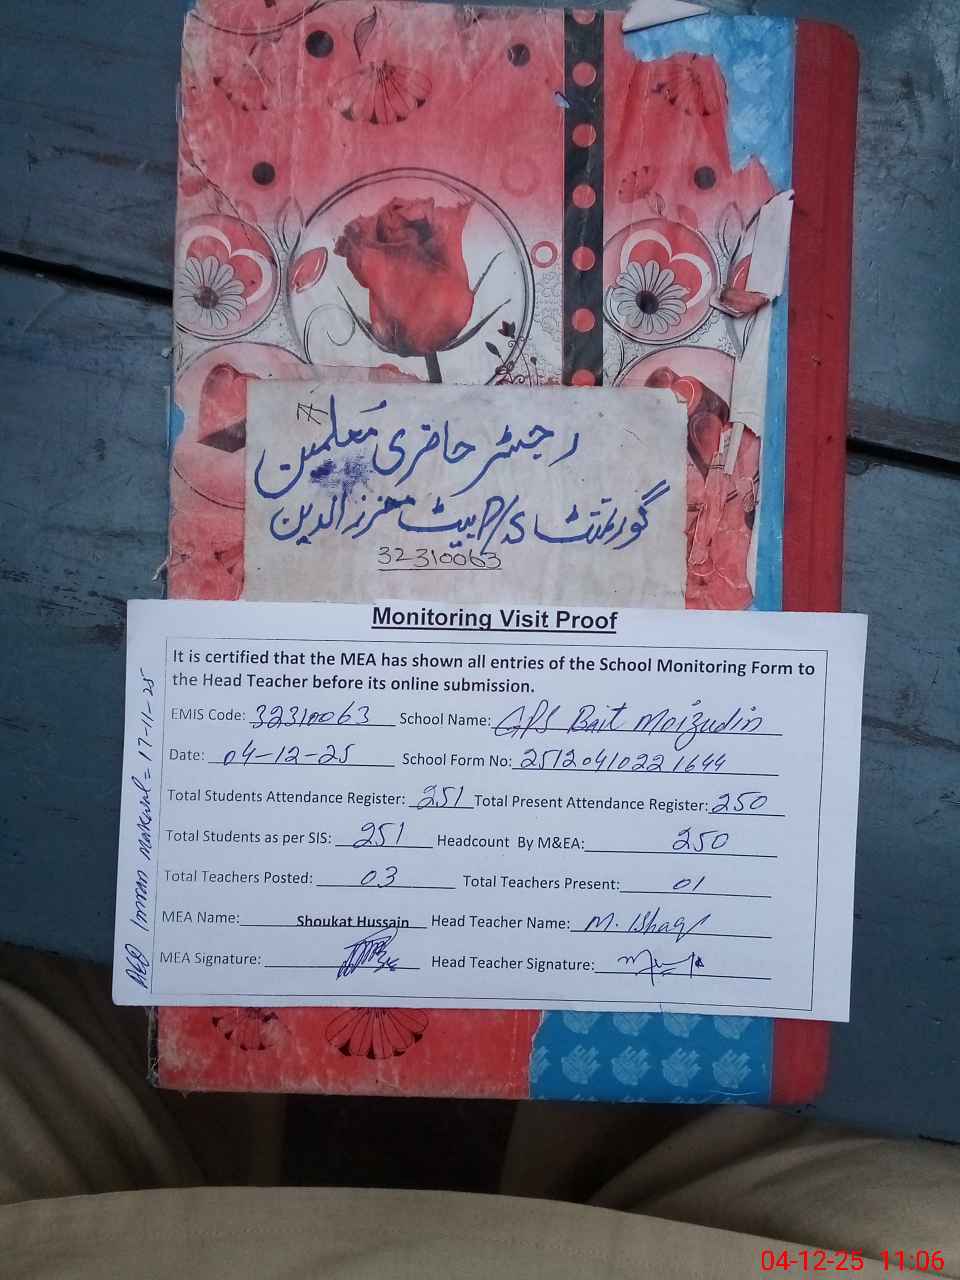 رجسٹر حاضری مُعلمین
گورنمنٹ پی/ایس بیٹ معزز الدین
32310063
Monitoring Visit Proof
It is certified that the MEA has shown all entries of the School Monitoring Form to
the Head Teacher before its online submission.
EMIS Code: 32310063 School Name: GPS Bait Moizudin
Date: 04-12-25 School Form No: 2512041022 1644
Total Students Attendance Register: 251 Total Present Attendance Register: 250
Total Students as per SIS: 251 Headcount By M&EA: 250
Total Teachers Posted: 03 Total Teachers Present: 01
MEA Name: Shoukat Hussain Head Teacher Name: M. Ishaq
MEA Signature: Head Teacher Signature:
AEO Imran Makwal = 17-11-25
04-12-25 11:06